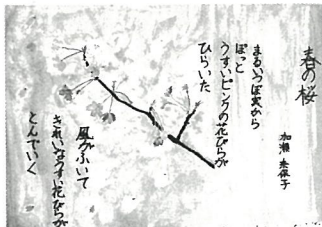 春の桜
加瀬 奈保子
まるいつぼみから
ぽっと
うすいピンクの花びらが
ひらいた
風がふいて
きれいなうすい花びらが
とんでいく